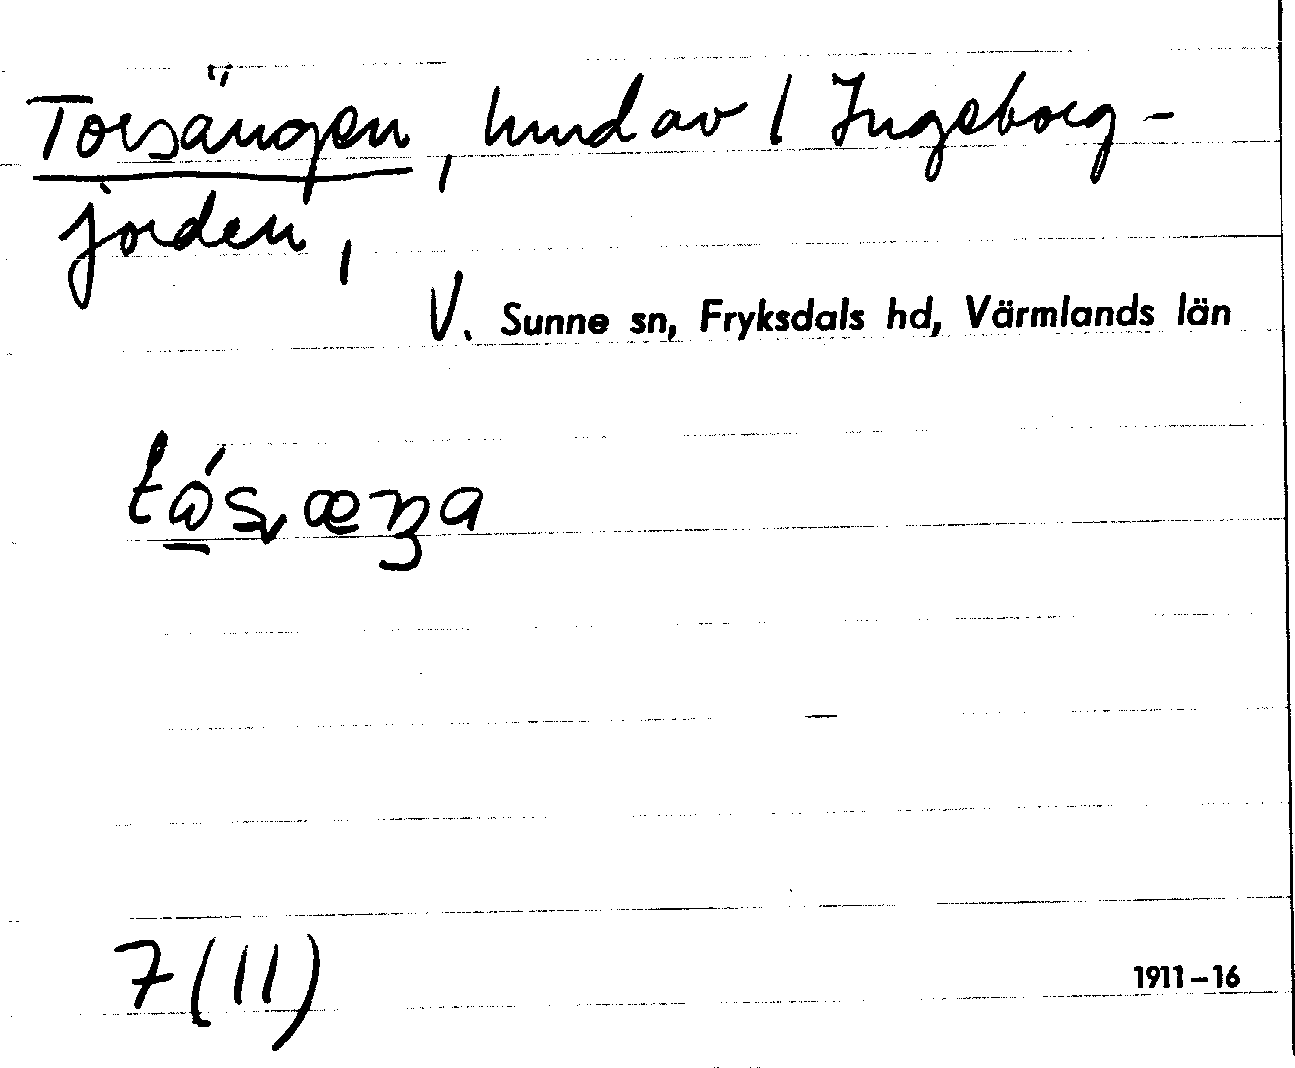 Torsängen, hmd av / Ingeborg-
jorden,
V. Sunne sn, Fryksdals hd, Värmlands län
7 (11)
1911-16